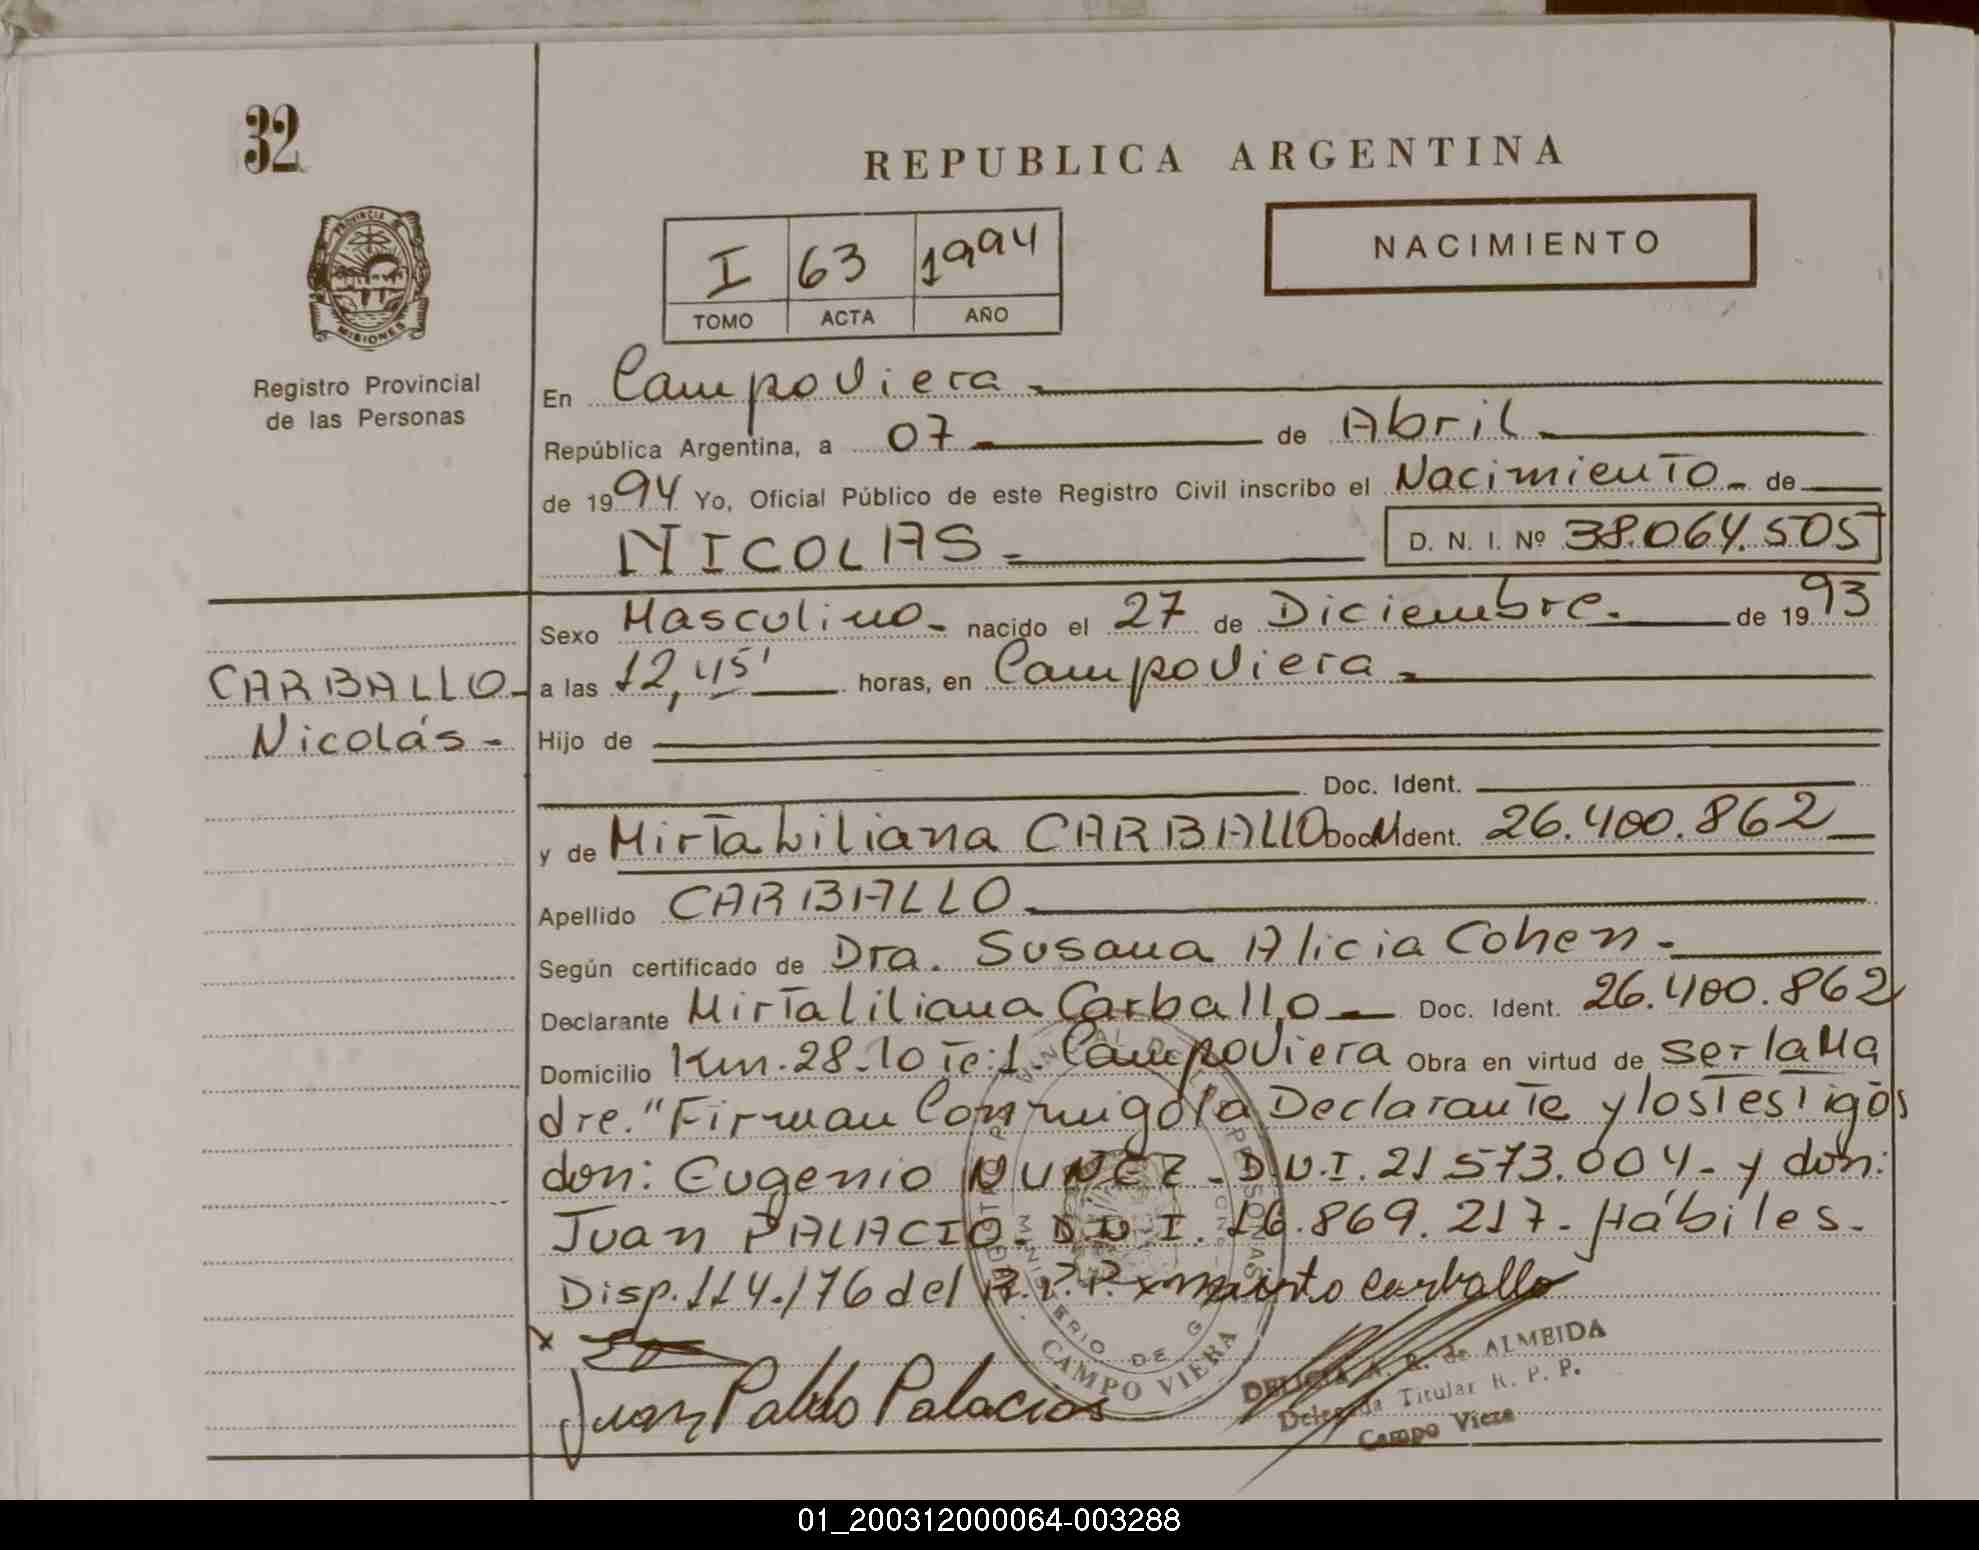 32
REPUBLICA ARGENTINA
PROVINCIA
MISIONES
Registro Provincial
de las Personas
I 63 1994
TOMO ACTA AÑO
NACIMIENTO
En Campo Viera
República Argentina, a 07 de Abril
de 1994 Yo, Oficial Público de este Registro Civil inscribo el Nacimiento de
NICOLAS D. N. I. Nº 38.064.505
Sexo Masculino nacido el 27 de Diciembre de 1993
CARBALLO
Nicolás
a las 12,45' horas, en Campo Viera
Hijo de
Doc. Ident.
y de Mirta Liliana CARBALLO Doc. Ident. 26.400.862
Apellido CARBALLO
Según certificado de Dra. Susana Alicia Cohen
Declarante Mirta liliana Carballo Doc. Ident. 26.400.862
Domicilio Km. 28. lote: 1. Campo Viera Obra en virtud de ser la Ma
dre." Firman Conmigo la Declarante y los Testigos
don: Eugenio NUÑEZ - D.N.I. 21 573.004 - y don:
Juan PALACIO. D.N.I. 16.869.217 - Hábiles.
Disp. 114/76 del R.P.P. x mirta carballo
x
Juan Pablo Palacios
DELICIA A. R. de ALMEIDA
Delegada Titular R. P. P.
Campo Viera
CAMPO VIERA
01_200312000064-003288